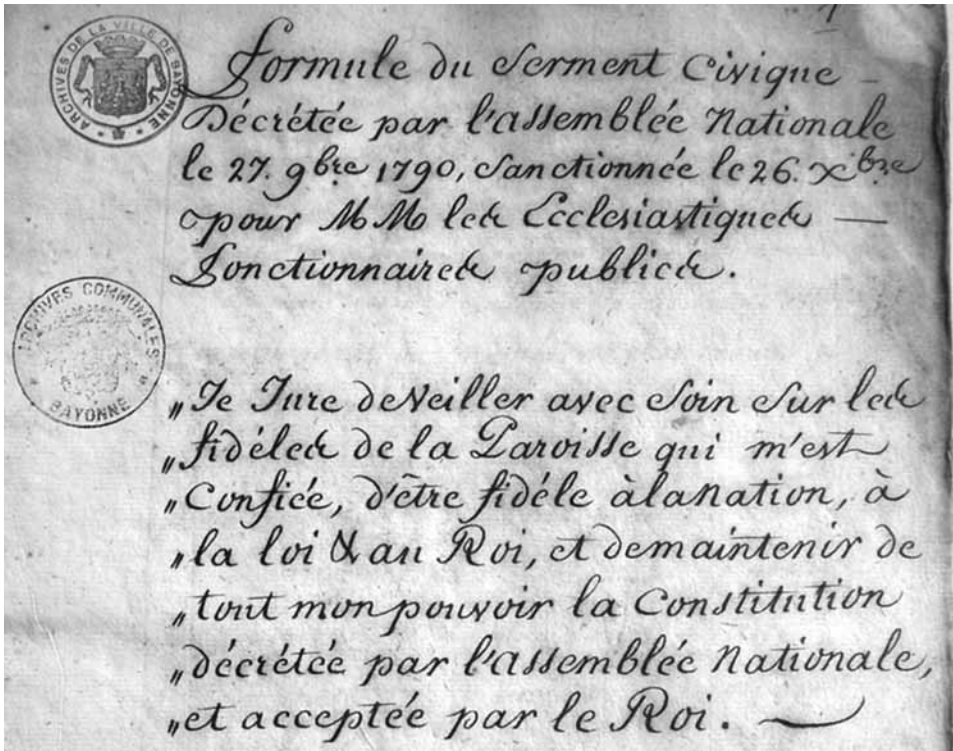 ARCHIVES DE LA VILLE DE BAYONNE
formule du Serment Civique
Décrétée par l'assemblée Nationale
le 27. 9bre 1790, Sanctionnée le 26. xbre
pour MM les Ecclesiastiques —
fonctionnaires publics.
ARCHIVES COMMUNALES
BAYONNE
„Je Jure deVeiller avec Soin Sur les
„fidéles de la Paroisse qui m'est
„Confiée, d'être fidéle àlaNation, à
„la loi & au Roi, et demaintenir de
„tout mon pouvoir la Constitution
„décrétée par l'assemblée Nationale,
„et acceptée par le Roi. —